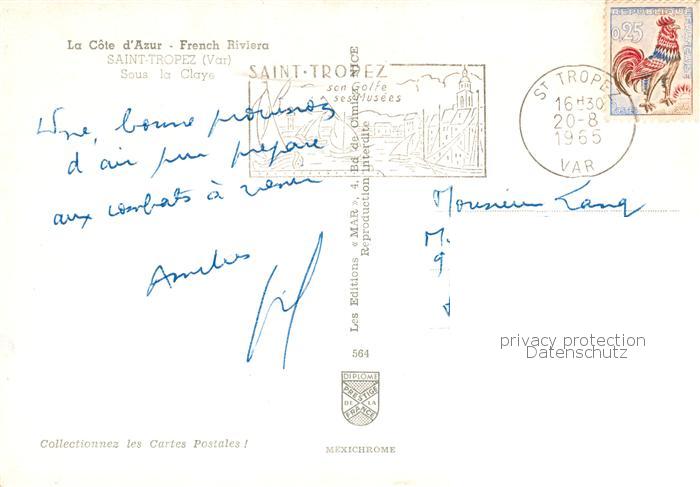 La Côte d'Azur - French Riviera
SAINT-TROPEZ (Var)
Sous la Claye
SAINT-TROPEZ
son Golfe
ses Musées
ST TROPEZ
16H30
20-8
1965
VAR
REPUBLIQUE FRANÇAISE
0,25
Une, bonne provision
d'air pur prépare
aux combats à venir
Amitiés
Monsieur Lang
M.
9
Les Editions « MAR », 4, Bd de Cimiez, NICE
Reproduction interdite
564
privacy protection
Datenschutz
DIPLOME
PRESTIGE
DE LA
FRANCE
Collectionnez les Cartes Postales !
MEXICHROME